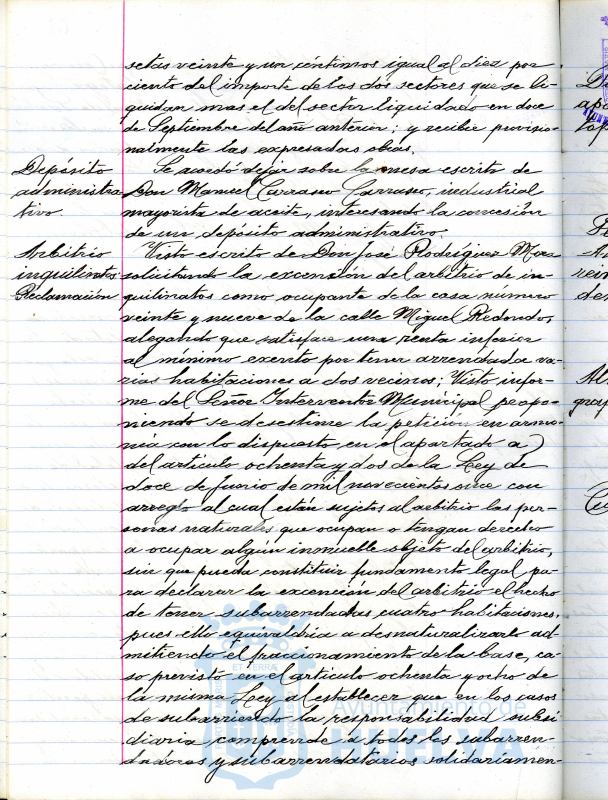 setas veinte y un céntimos igual al diez por
ciento del importe de los dos sectores que se li-
quidan mas el del sector liquidado en doce
de Septiembre del año anterior; y recibir provisio-
nalmente las expresadas obras.
Depósito
administra-
tivo.
Se acordó dejar sobre la mesa escrito de
Don Manuel Carrasco Carrasco, industrial
mayorista de aceite, interesando la concesión
de un depósito administrativo.
Arbitrio
inquilinatos
Reclamación
Visto escrito de Don José Rodríguez
solicitando la excención del arbitrio de in-
quilinatos como ocupante de la casa número
veinte y nueve de la calle Miguel Redondo,
alegando que satisface una renta inferior
al mínimo exento por tener arrendada va-
rias habitaciones a dos vecinos; Visto infor-
me del Señor Interventor Municipal propo-
niendo se desestime la petición en armo-
nía con lo dispuesto en el apartado a)
del artículo ochenta y dos de la Ley de
doce de junio de mil novecientos once con
arreglo al cual están sujetos al arbitrio las per-
sonas naturales que ocupan o tengan derecho
a ocupar algún inmueble objeto del arbitrio,
sin que pueda constituir fundamento legal pa-
ra declarar la excención del arbitrio el hecho
de tener subarrendadas cuatro habitaciones,
pues ello equivaldría a desnaturalizarlo ad-
mitiendo el fraccionamiento de la base, ca-
so previsto en el artículo ochenta y ocho de
la misma Ley al establecer que en los casos
de subarriendo la responsabilidad subsi-
diaria comprende a todos los subarren-
dadores y subarrendatarios solidariamen-
Ayuntamiento de
HUELVA